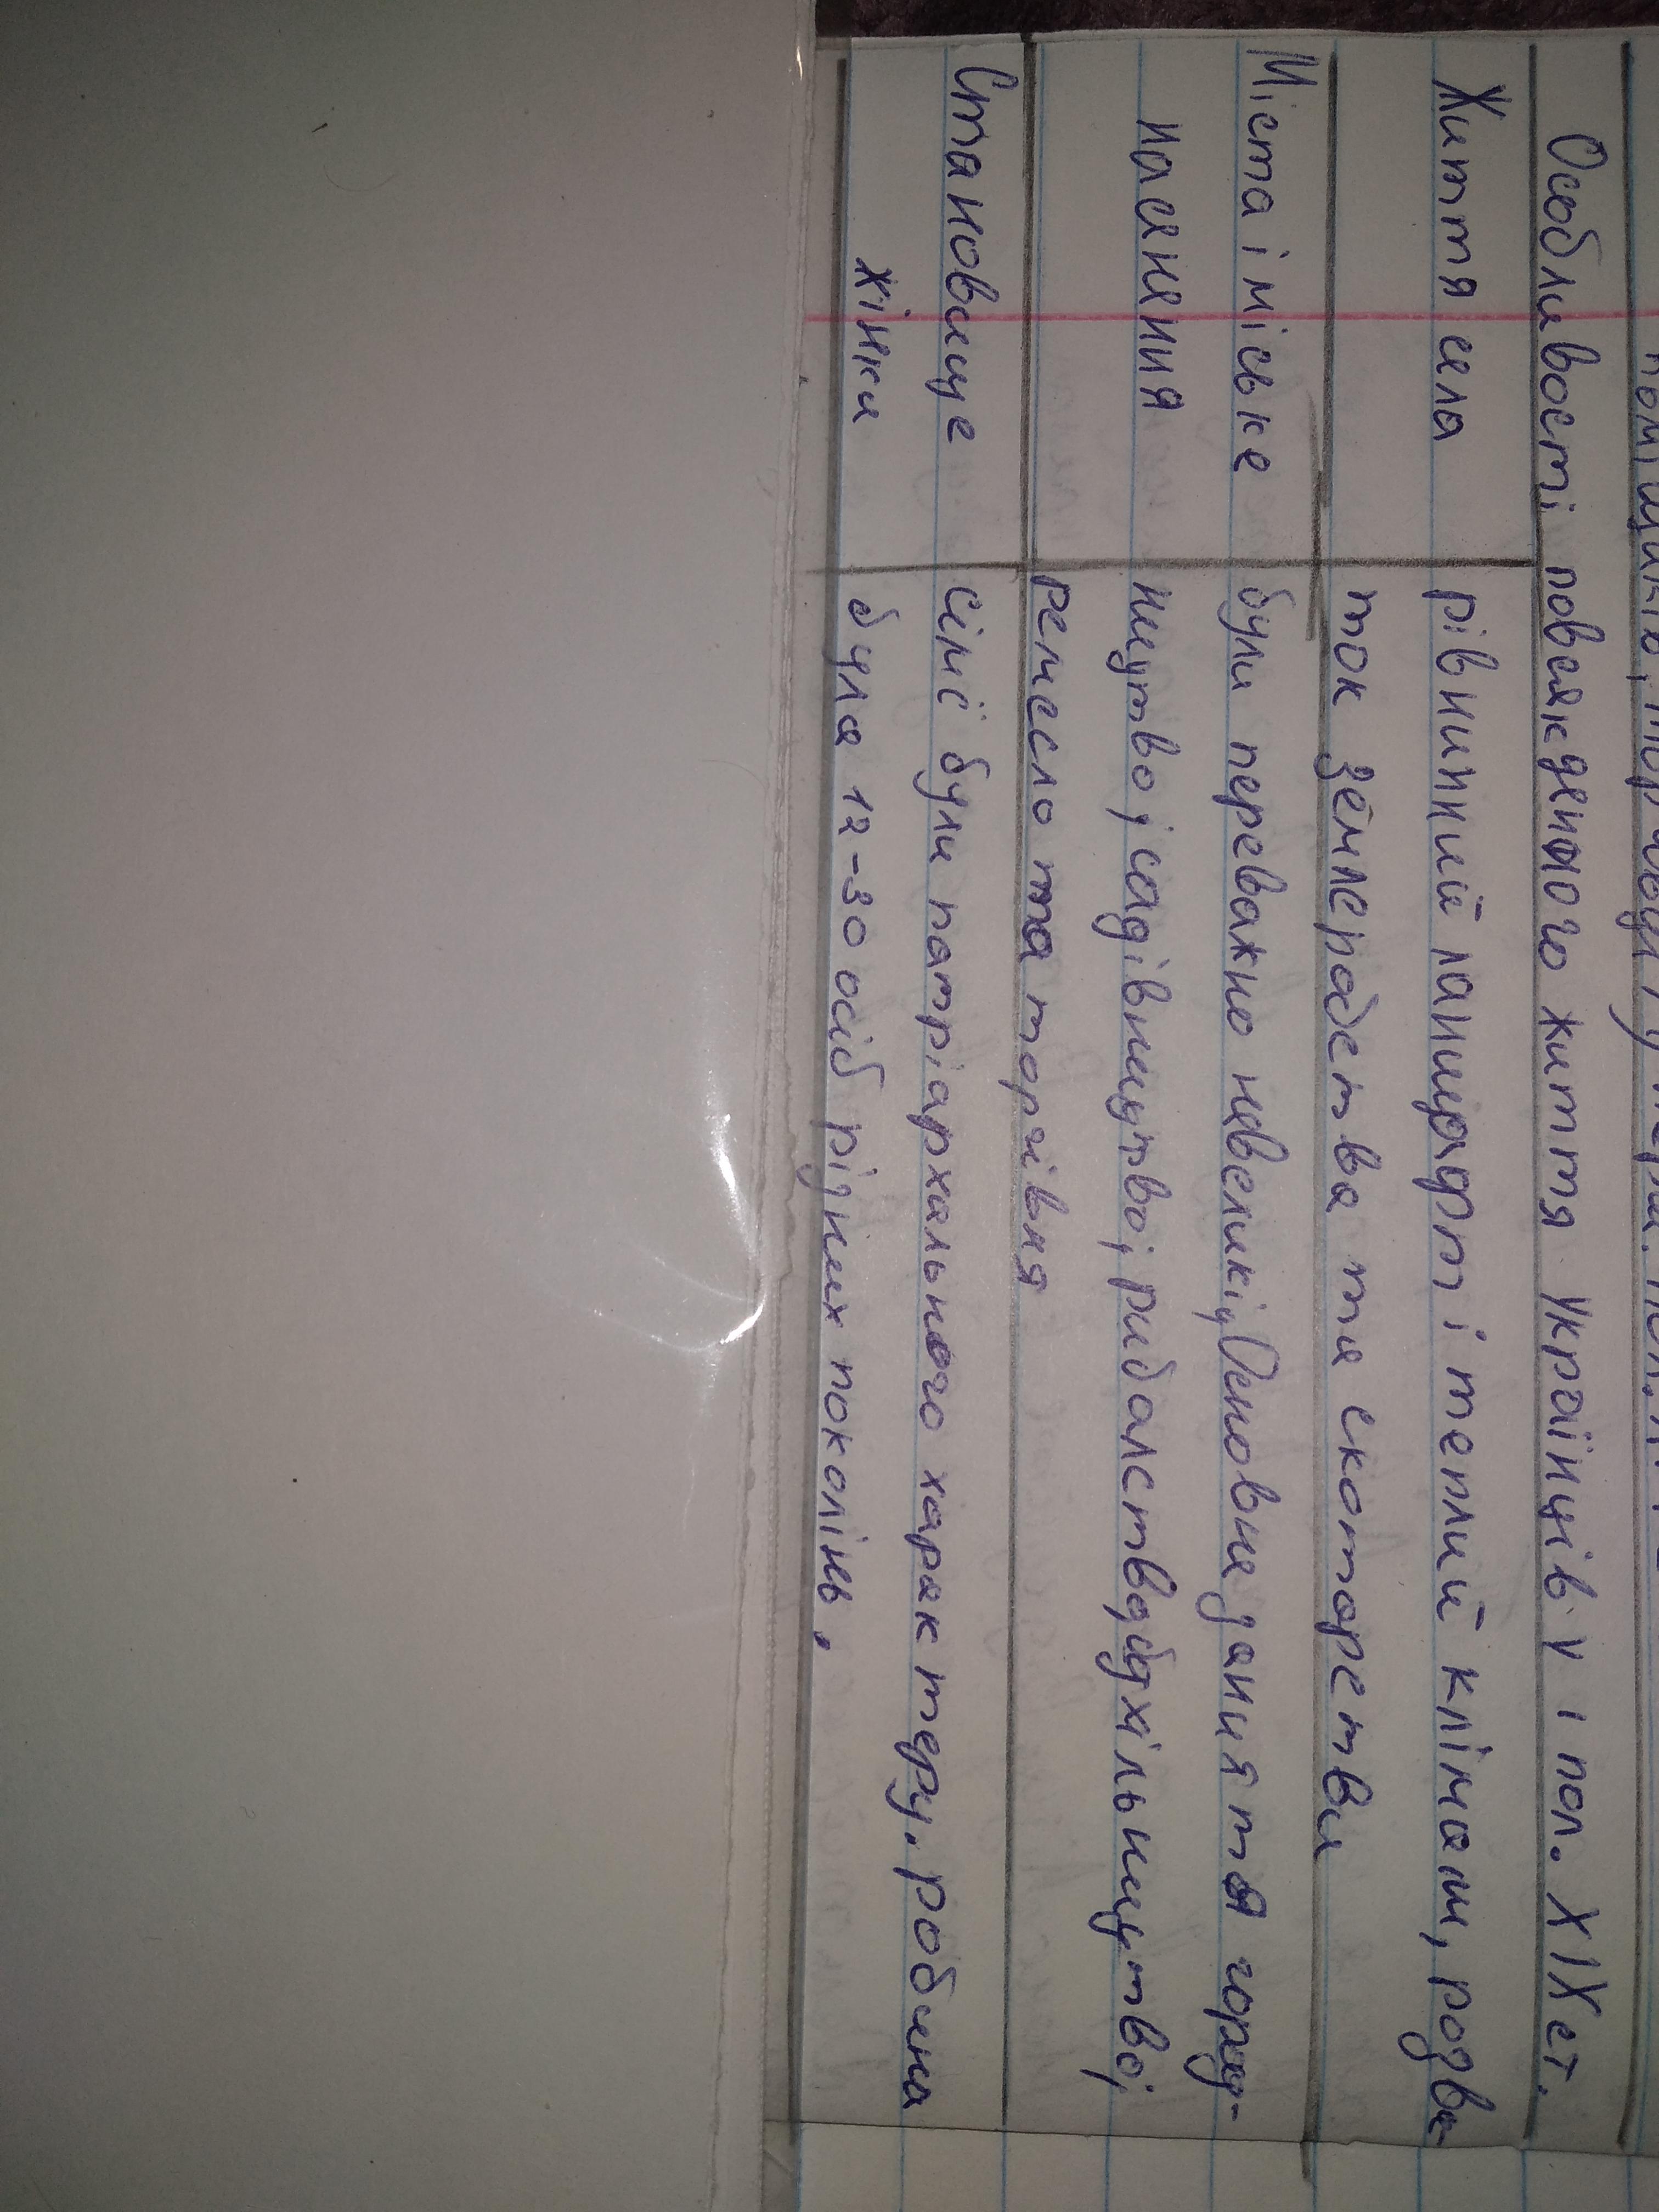 Особливості повсякденного життя Українців у І пол. XIX ст.
Життя села
рівнинний ландшафт і теплий клімат, розви-
ток землеробства та скотарства
Міста і міське
населення
були переважно невеликі, Основне заняття город-
ництво, садівництво, рибальство, бджільництво,
ремесло та торгівля
Становище
жінки
сім'ї були патріархального характеру. родина
була 12-30 осіб різних поколінь.